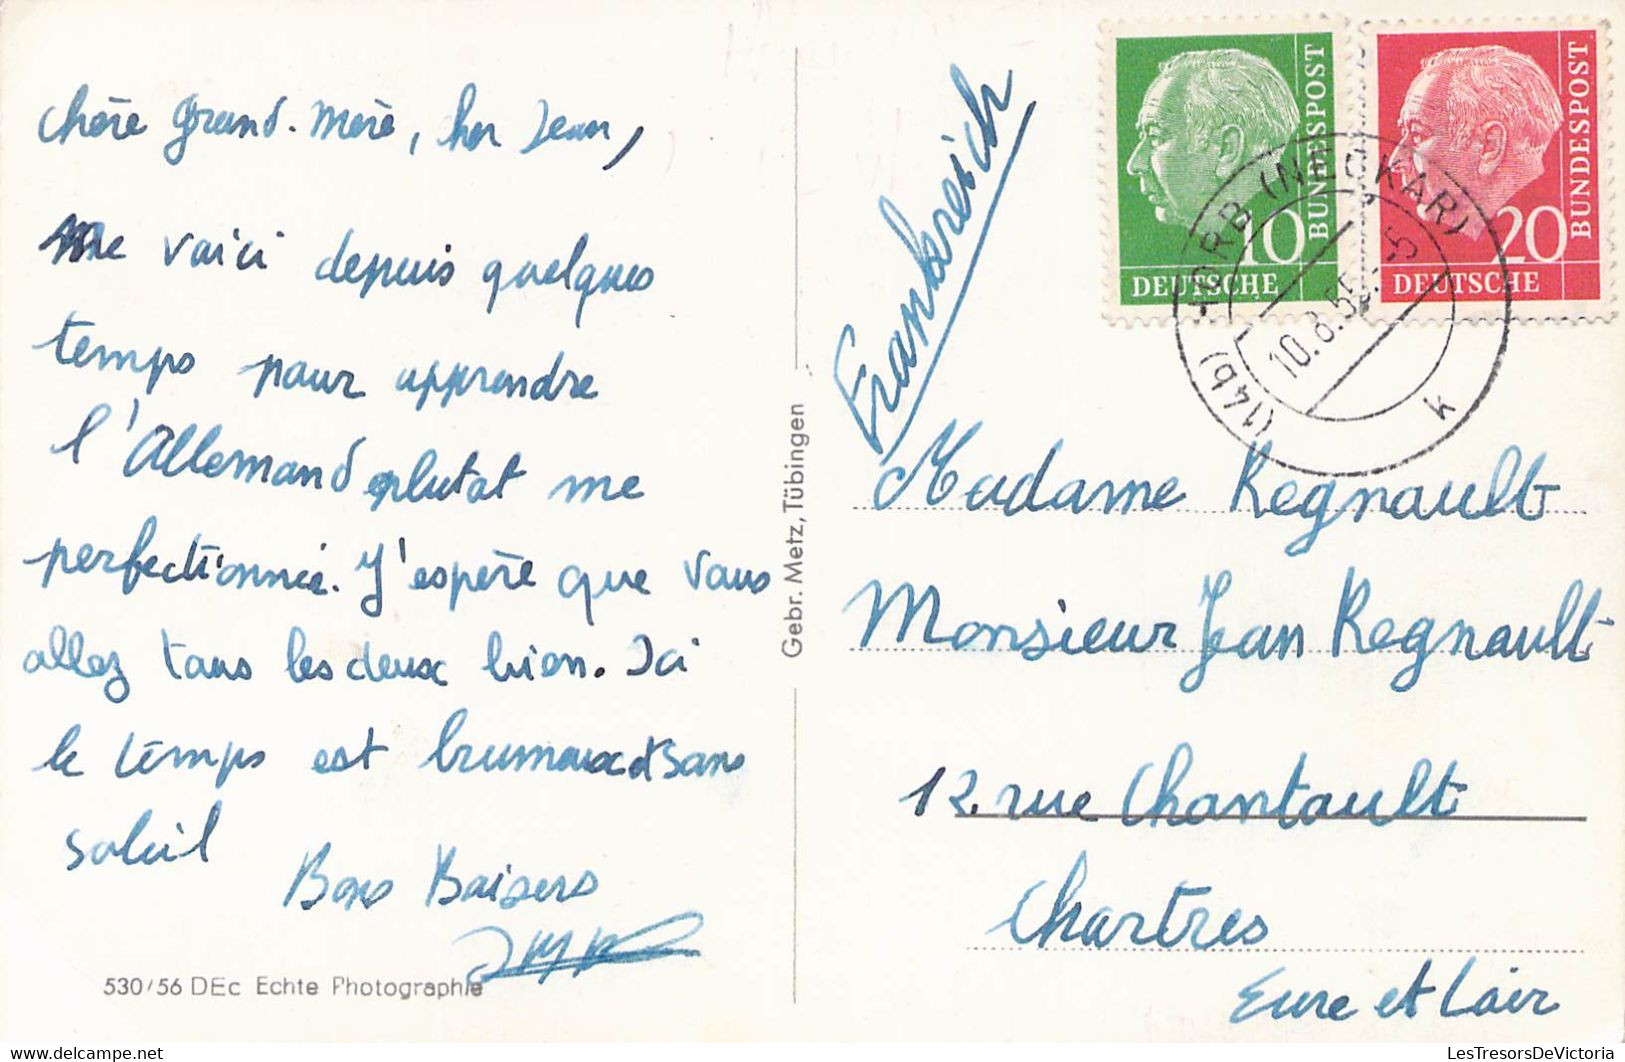 chère Grand-Mère, her Jean,
Me voici depuis quelques
temps pour apprendre
l'Allemand plutot me
perfectionnée. J'espère que vous
allez tous les deux bien. Ici
le temps est brumeux et sans
soleil
Bons Baisers
530/56 DEc Echte Photographie
Gebr. Metz, Tübingen
Frankreich
10
DEUTSCHE
BUNDESPOST
20
DEUTSCHE
BUNDESPOST
(14b) HORB (NECKAR)
10.8.55.-5
k
Madame Regnault
Monsieur Jean Regnault
12. rue Chantault
Chartres
Eure et Loir
LesTresorsDeVictoria